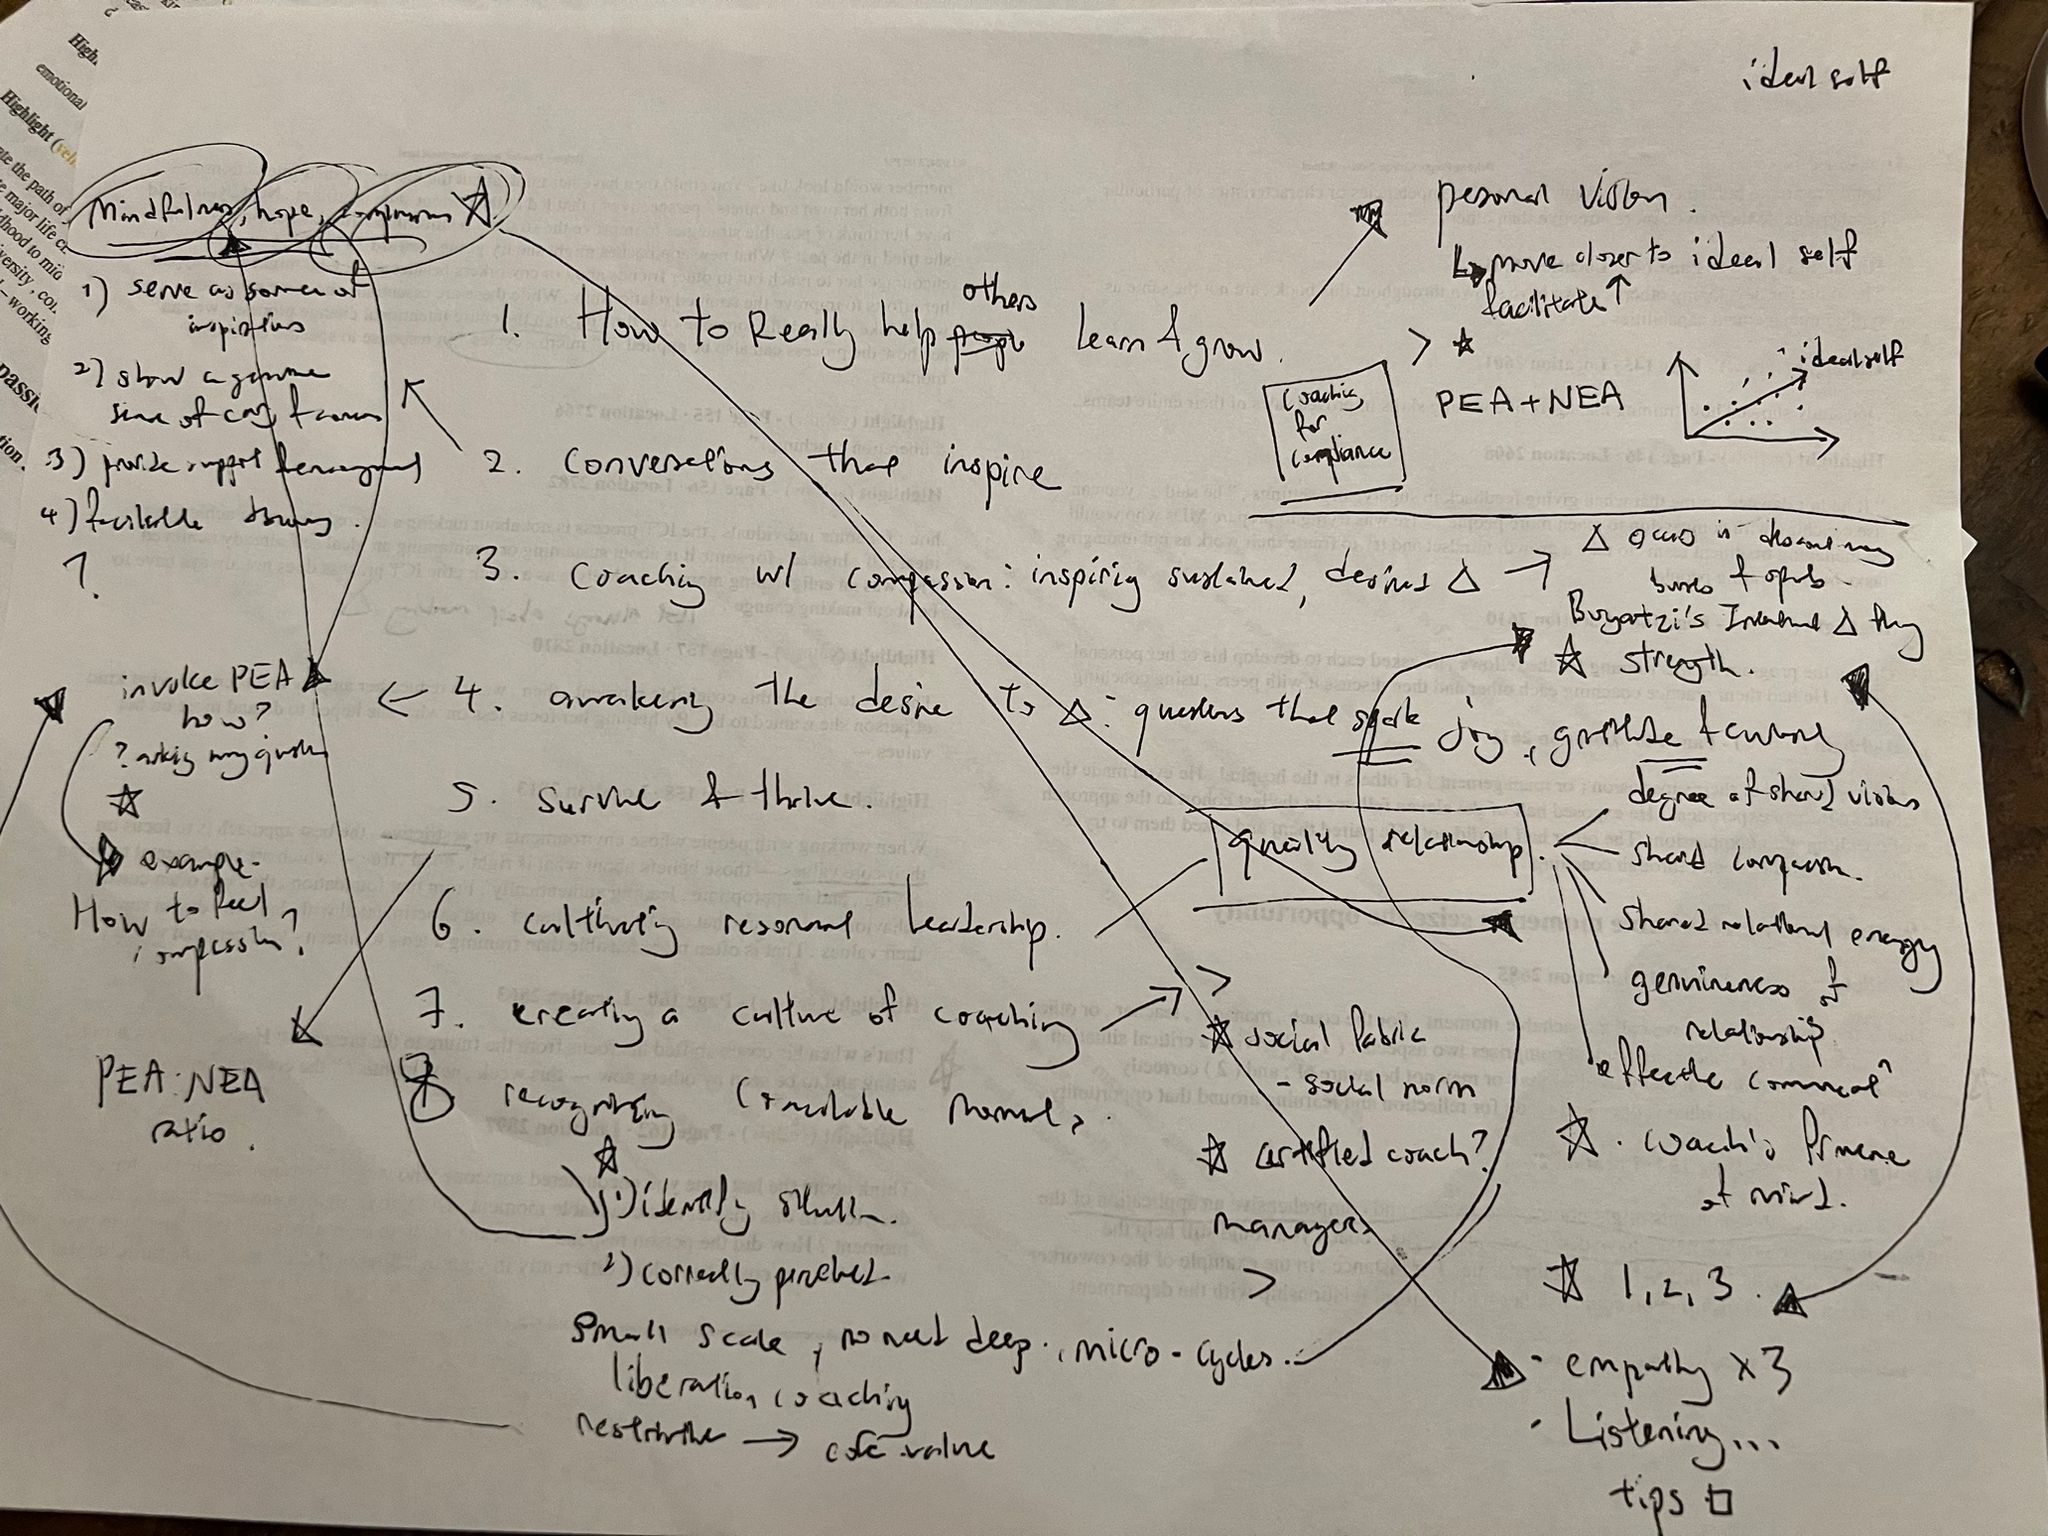 ideal self
Mindfulness, hope, compassion
1) serve as source of
inspiration
2) show a genuine
sense of care & concern
3) provide support & encouragement
4) facilitate
?
personal vision.
move closer to ideal self
facilitate ↑
others
1. How to Really help people learn & grow.
Coaching
for
compliance
PEA + NEA
ideal self
2. Conversations that inspire
3. Coaching w/ compassion: inspiring sustained, desired Δ →
Δ occurs in discontinuous
bursts & spurts
Boyatzi's Intentional Δ theory
☆ strength.
invoke PEA
how?
? asking many questions
example.
How to feel
compassion?
← 4. awakening the desire to Δ: questions that spark joy, gratitude & curiosity
5. survive & thrive.
PEA:NEA
ratio.
6. cultivating resonant leadership.
quality relationship.
degree of shared vision
shared compassion.
shared relational energy
genuineness of
relationship
effective comment^
7. creating a culture of coaching
☆ social fabric
- social norm
☆ certified coach?
managers
☆ . coach's frame
of mind.
☆ 1, 2, 3.
· empathy x3
· Listening...
tips □
8 recognizing coachable moments.
1) identify situation.
2) correctly
small scale, no need deep., micro-cycles.
liberation coaching
restrictive → core value